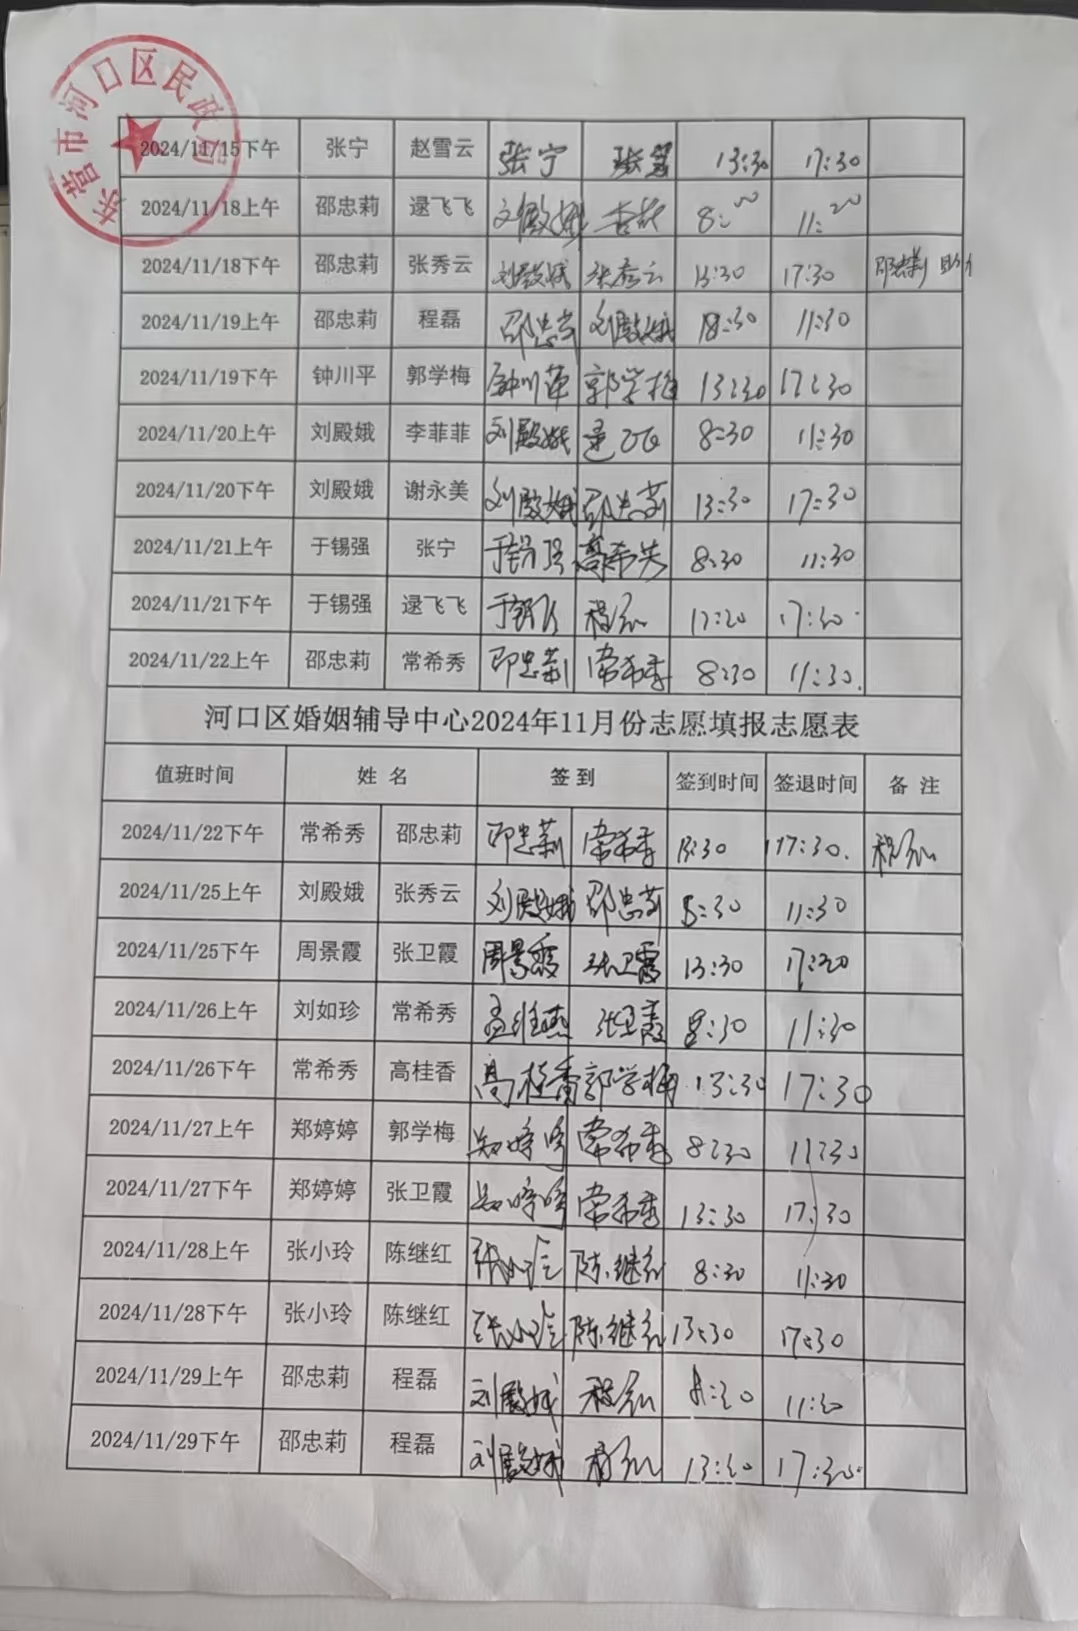 东营市河口区民政局
2024/11/15下午 张宁 赵雪云 张宁 13:30 17:30
2024/11/18上午 邵忠莉 逯飞飞 刘殿娥 8:00 11:20
2024/11/18下午 邵忠莉 张秀云 刘殿娥 张秀云 13:30 17:30 邵忠莉
2024/11/19上午 邵忠莉 程磊 邵忠莉 刘殿娥 8:30 11:30
2024/11/19下午 钟川平 郭学梅 钟川平 郭学梅 13:30 17:30
2024/11/20上午 刘殿娥 李菲菲 刘殿娥 逯飞飞 8:30 11:30
2024/11/20下午 刘殿娥 谢永美 刘殿娥 邵忠莉 13:30 17:30
2024/11/21上午 于锡强 张宁 于锡强 8:30 11:30
2024/11/21下午 于锡强 逯飞飞 于锡强 程磊 17:30
2024/11/22上午 邵忠莉 常希秀 邵忠莉 常希秀 8:30 11:30.
河口区婚姻辅导中心2024年11月份志愿填报志愿表
值班时间 姓 名 签到 签到时间 签退时间 备 注
2024/11/22下午 常希秀 邵忠莉 邵忠莉 常希秀 13:30 17:30. 程磊
2024/11/25上午 刘殿娥 张秀云 刘殿娥 邵忠莉 8:30 11:30
2024/11/25下午 周景霞 张卫霞 周景霞 张卫霞 13:30 17:30
2024/11/26上午 刘如珍 常希秀 孟维燕 张卫霞 8:30 11:30
2024/11/26下午 常希秀 高桂香 高桂香 郭学梅 13:30 17:30
2024/11/27上午 郑婷婷 郭学梅 郑婷婷 常希秀 8:30 11:30
2024/11/27下午 郑婷婷 张卫霞 郑婷婷 常希秀 13:30 17:30
2024/11/28上午 张小玲 陈继红 张小玲 陈继红 8:30 11:30
2024/11/28下午 张小玲 陈继红 张小玲 陈继红 13:30 17:30
2024/11/29上午 邵忠莉 程磊 刘殿娥 程磊 8:30 11:30
2024/11/29下午 邵忠莉 程磊 刘殿娥 程磊 13:30 17:30